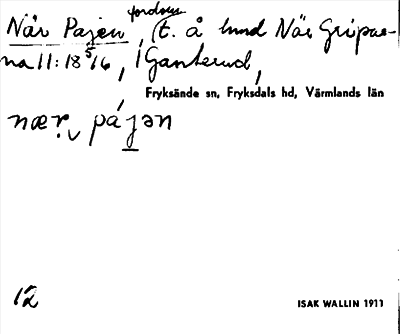 När Pajen, fordom t. å hund När Gripar-
na 11:18 5/16, i Ganterud,
Fryksände sn, Fryksdals hd, Värmlands län
nær pájən
12
ISAK WALLIN 1911